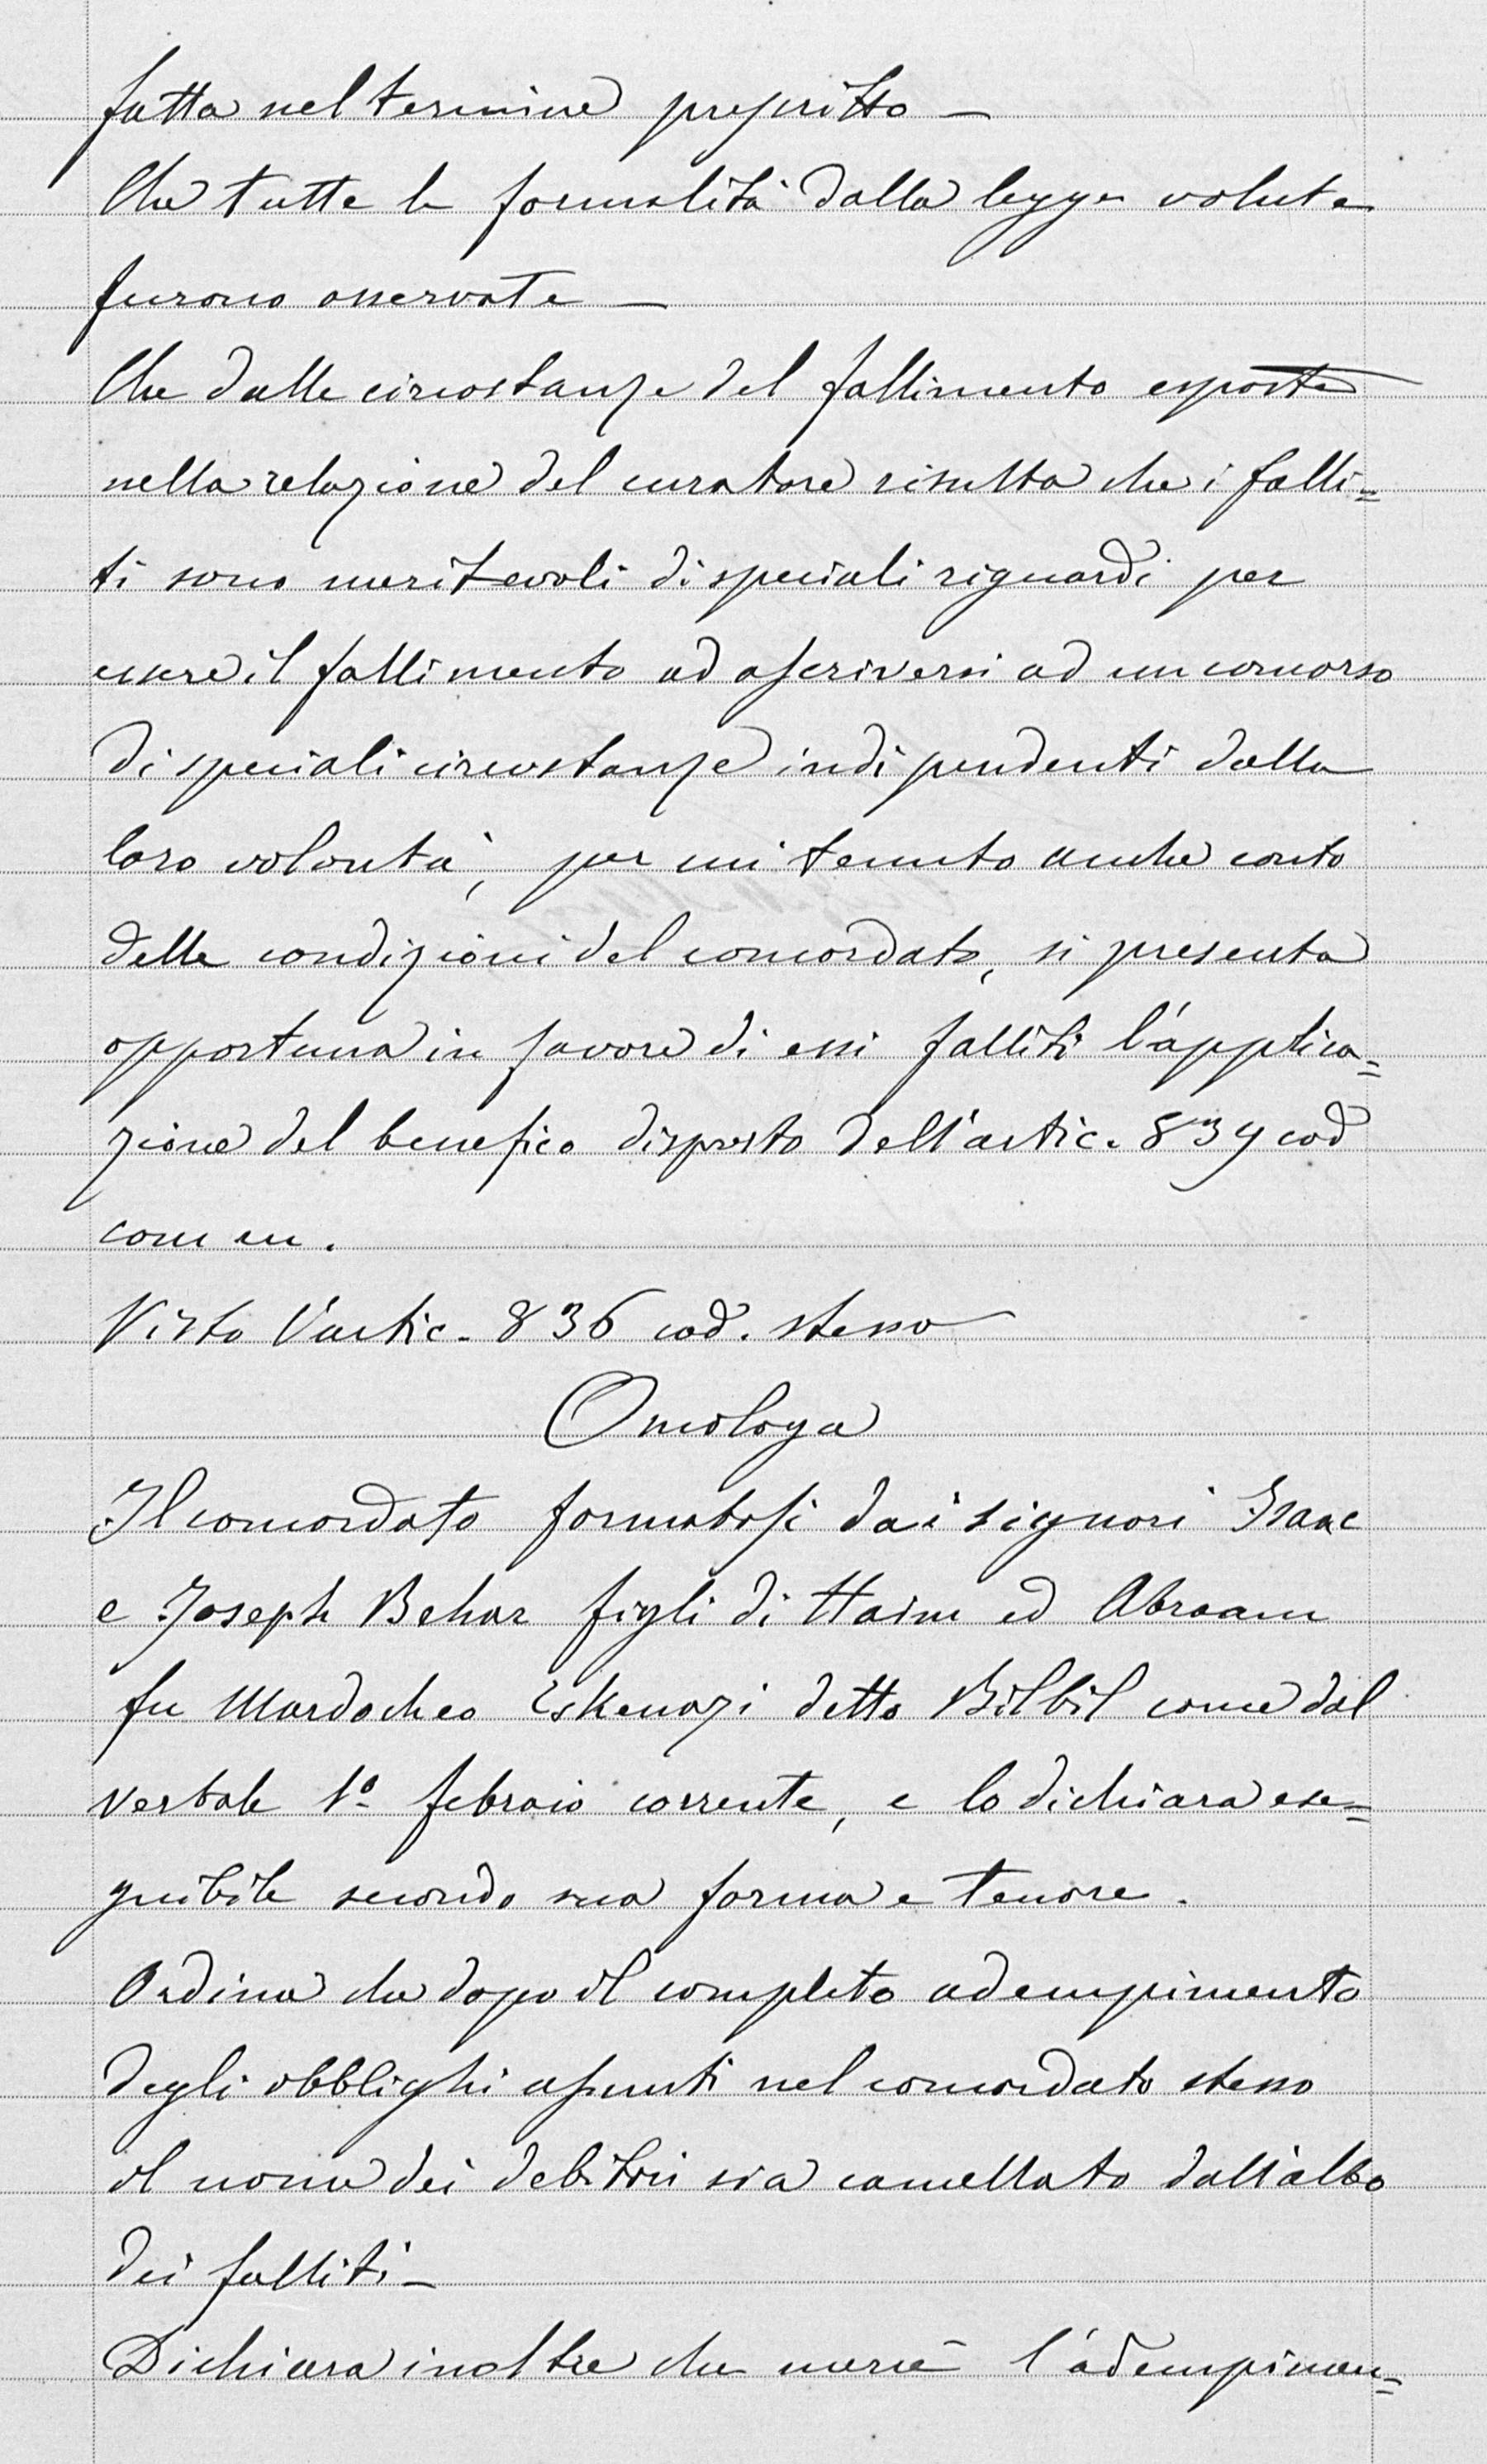 fatta nel termine prescritto —
Che tutte le formalità dalla legge volute
furono osservate —
Che dalle circostanze del fallimento esposte
nella relazione del curatore risulta che i falli=
ti sono meritevoli di speciali riguardi per
essere il fallimento ad ascriversi ad un concorso
di speciali circostanze indipendenti dalla
loro volontà, per cui tenuto anche conto
delle condizioni del concordato, si presenta
opportuna in favore di essi falliti l'applica=
zione del benefico disposto dell'artic. 839 cod
comm.
Visto l'artic. 836 cod. stesso
Omologa
Il concordato formatosi dai signori Isaac
e Joseph Behar figli di Haim ed Abraam
fu Mardocheo Eskenazi detto Bilbil come dal
verbale 1º febraio corrente, e lo dichiara ese=
guibile secondo sua forma e tenore.
Ordina che dopo il completo adempimento
degli obblighi assunti nel concordato stesso
il nome dei debitori sia cancellato dall'albo
dei falliti —
Dichiara inoltre che mercè l'adempimen=